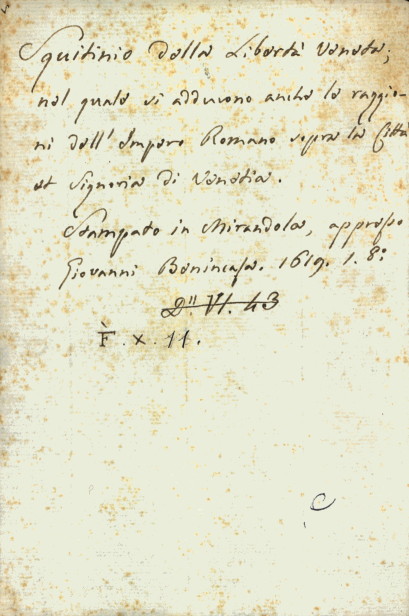 Squitinio della Libertà Veneta;
nel quale si adducono anche le raggio-
ni dell' Impero Romano sopra la Città
et Signoria di Venetia.
Stampato in Mirandola, appresso
Giovanni Benincasa. 1619. 1. 8.º
D" VI. 43
F. x. 11.
C